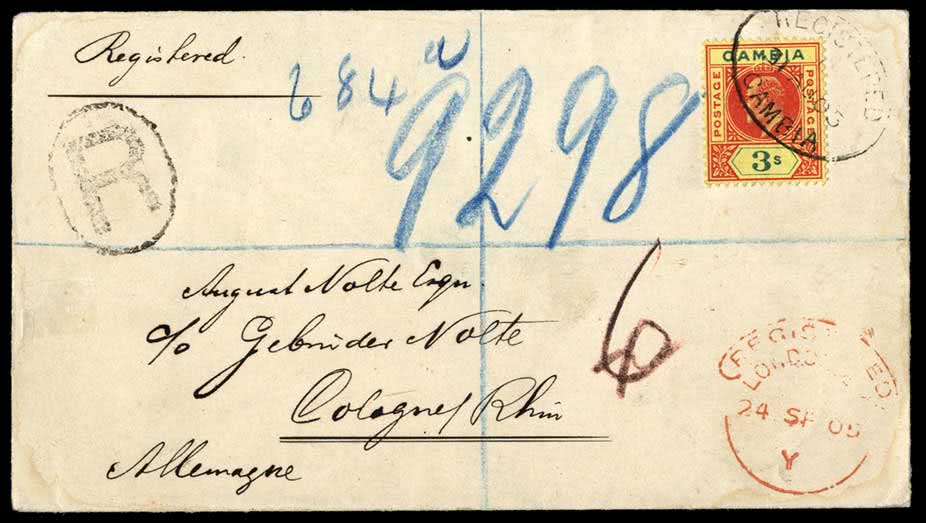 Registered.
684
9298
R
REGISTERED
GAMBIA
GAMBIA
POSTAGE
POSTAGE
3s
August Nolte Esqr.
c/o Gebrüder Nolte
Cologne/Rhin
Allemagne
6
REGISTERED
LONDON
24 SP 05
Y